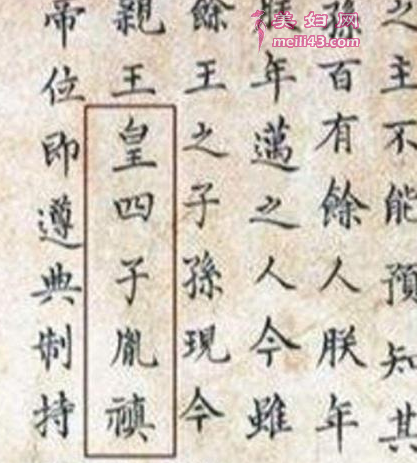 之主不能預知其
孫百有餘人朕年
朕年邁之人今雖
餘王之子孫現今
親王皇四子胤禛
帝位即遵典制持
美妇网
meili43.com